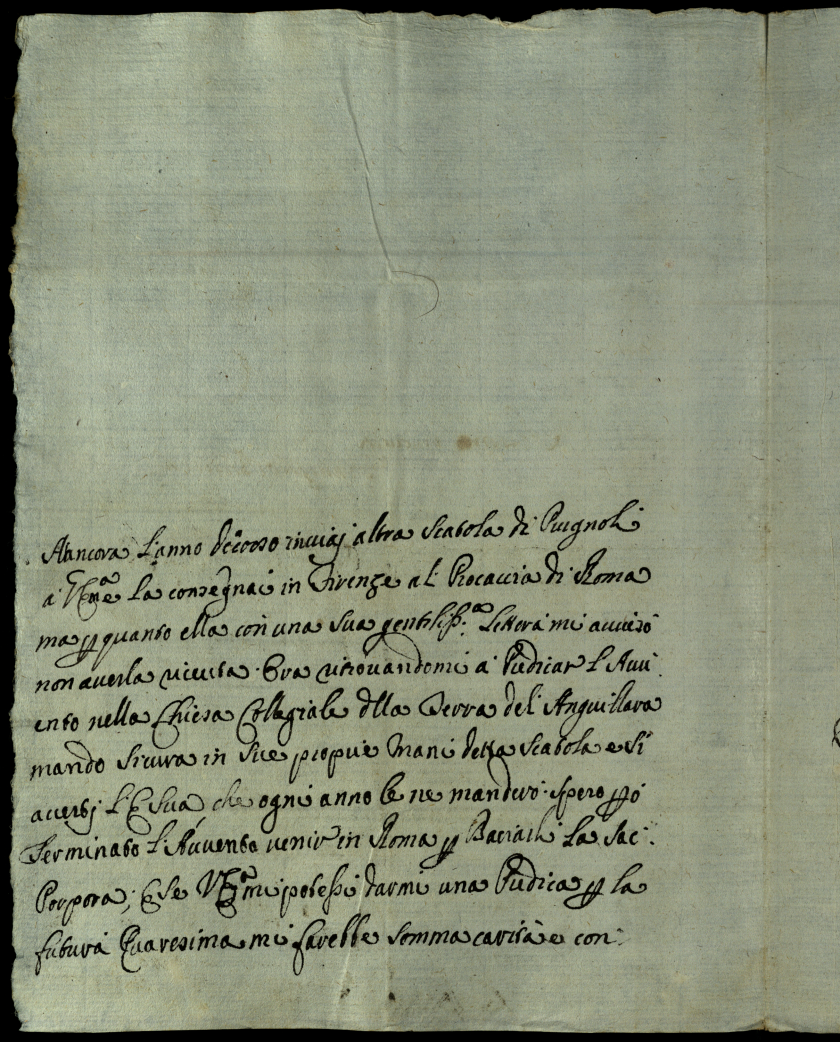 Ancora l'anno decorso inviai altra Scatola di Pugnoli
a V. Em.a La consegnai in Firenze al Procaccia di Roma
ma p quanto ella con una sua gentiliss.a Lettera mi avvisò
non averla ricevta. Ora ritrovandomi a Pudicar L'Avv:
ento nella Chiesa Collegiale dlla Terra del Anguillara
mando sicura in Sue propie Mani detta Scatola e si
accerti L'E Sua, che ogni anno le ne manderò. spero pò
Terminato L'Avvento venir in Roma p Baciarli La Sac:
Porpora; E se V.E.a mi potessi darmi una Pudica p la
futura Quaresima mi farebbe somma carità e con: